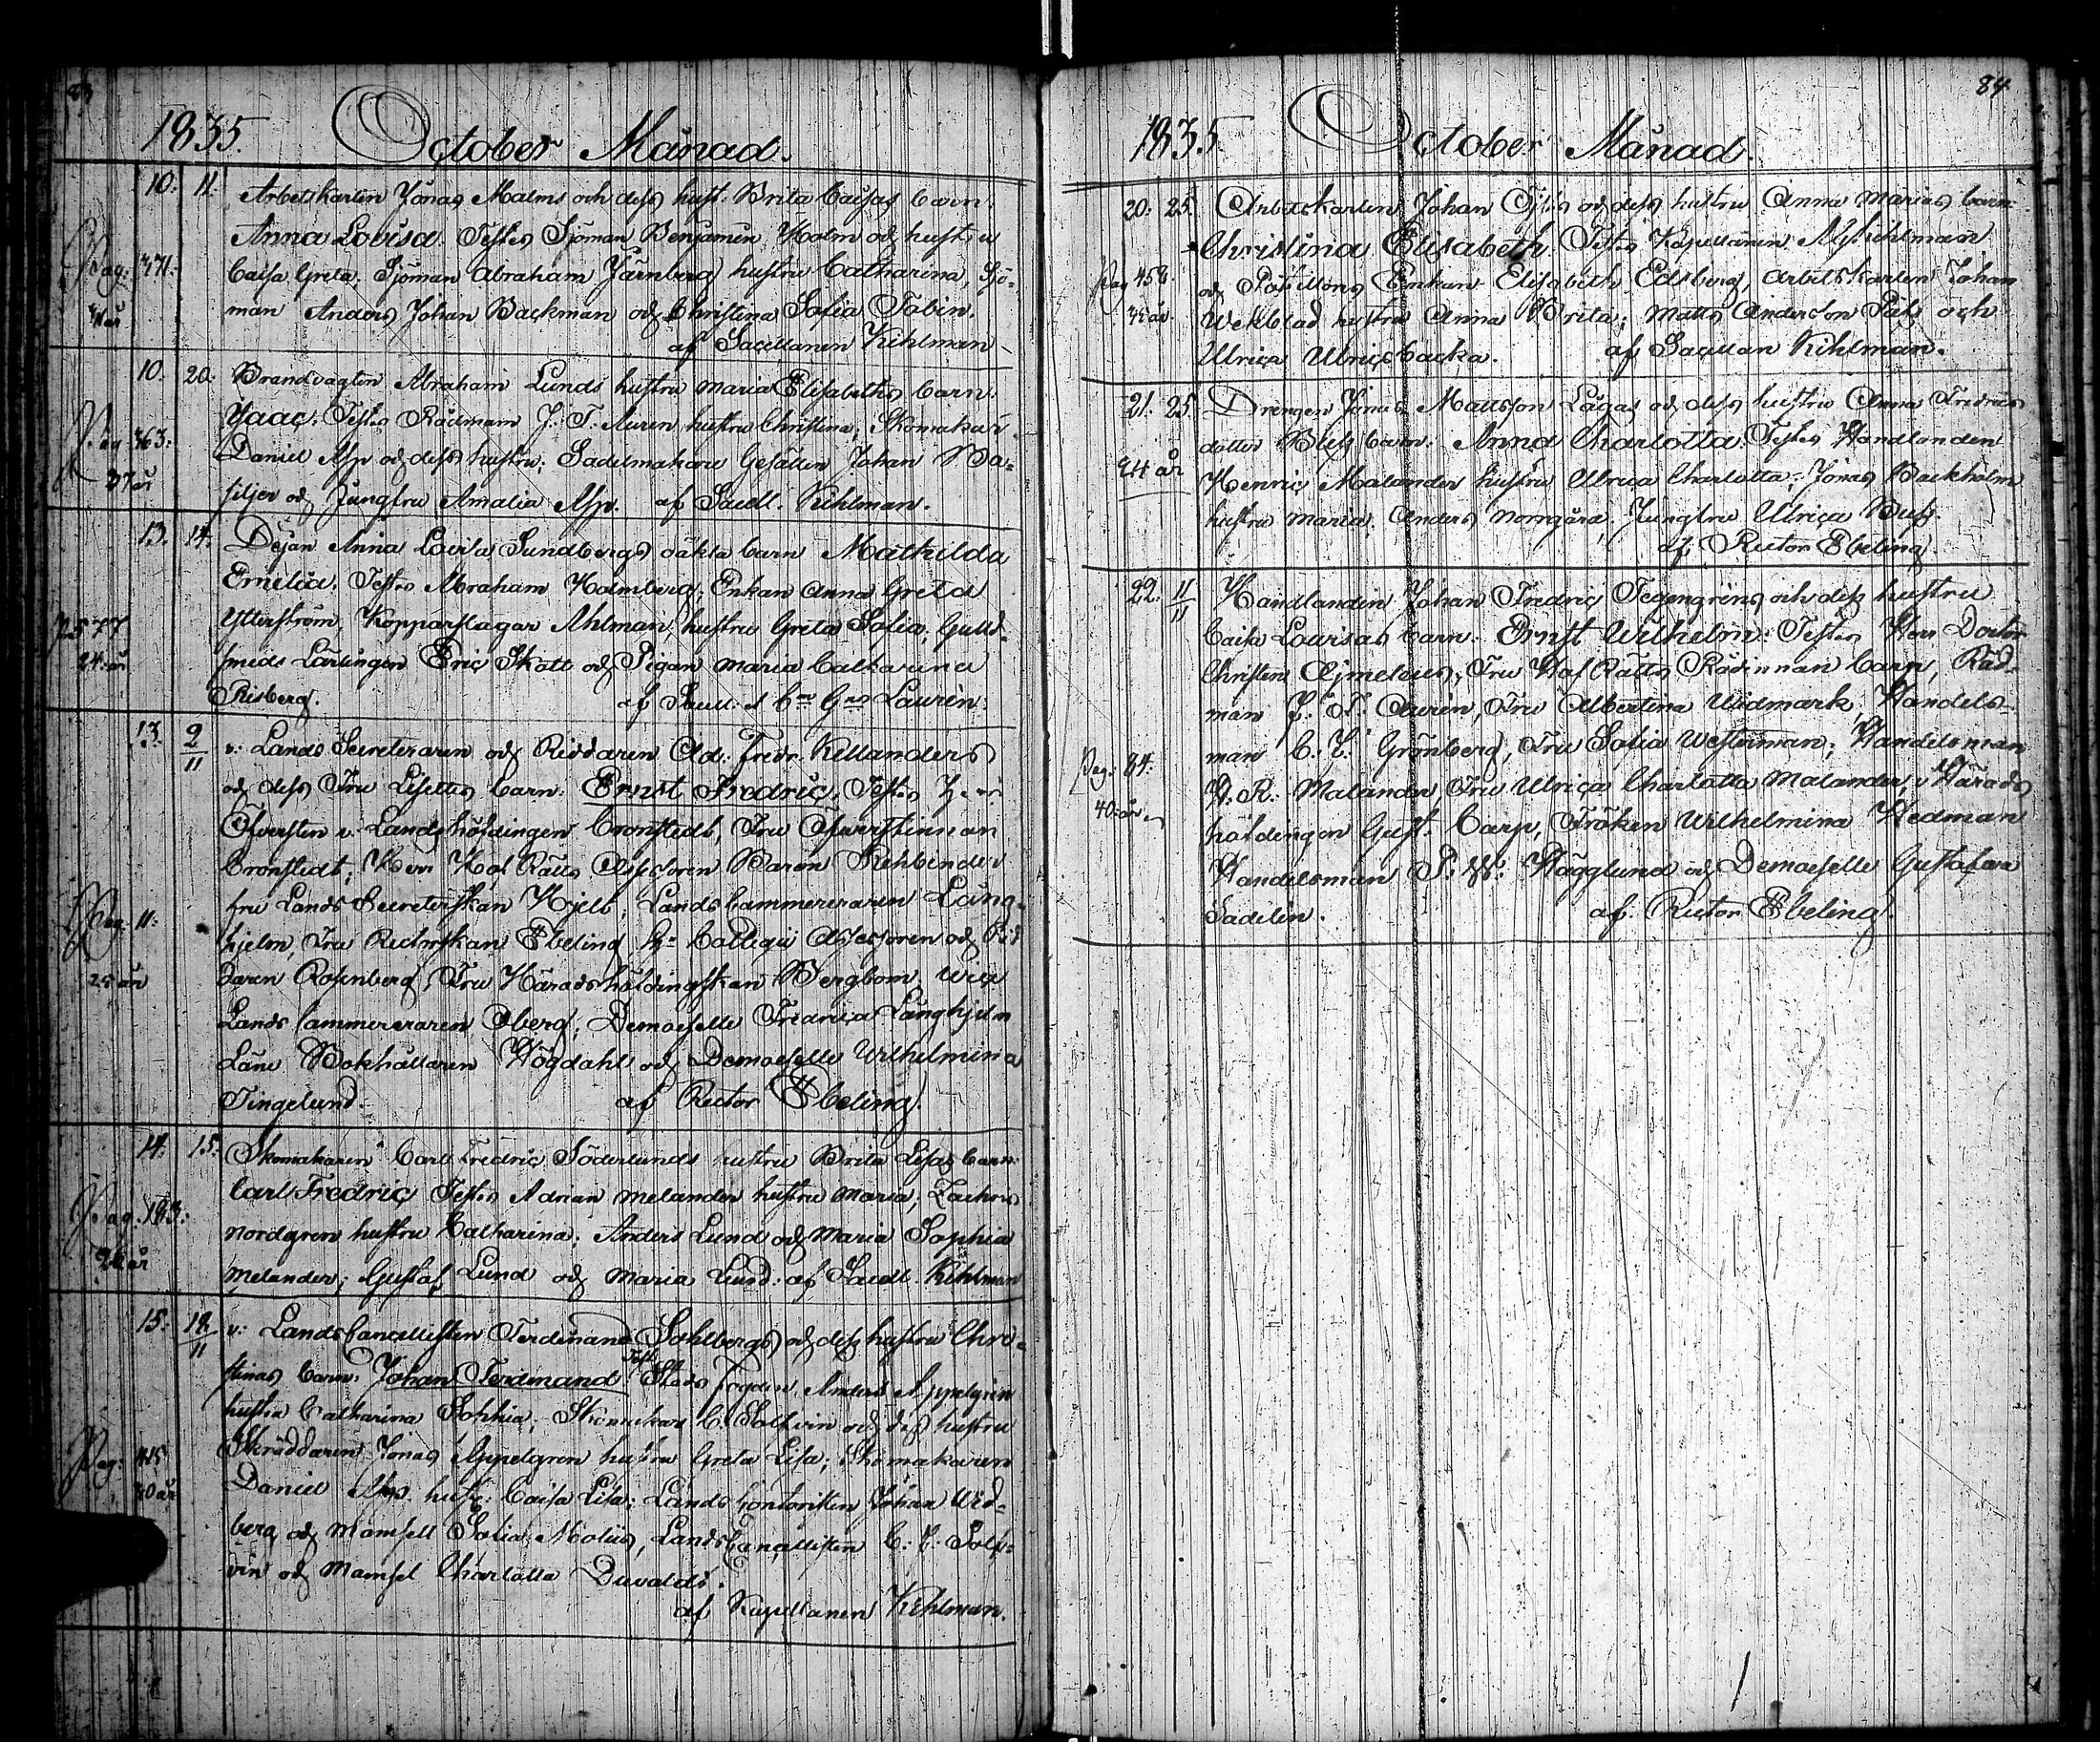 83
1835. October Månad.
10. 11. Arbetskarlen Jonas Malms och dess hust. Brita Caisas barn.
Anna Lovisa. Testes Sjöman Benjamin Holm och hustru
Pag: 371. Caisa Greta, Sjöman Abraham Järnberg hustru Catharina, Sjö-
man Anders Johan Backman och Christina Sofia Tobin.
af Sacellanen Kihlman
10. 20. Brandvagten Abraham Lunds hustru Maria Elisabeths barn.
Isaac. Testes Rådman J. T. Auren hustru Christina, Skomakar
Pag 363. Daniel Asp och dess hustru; Sadelmakare Gesällen Johan Ba-
37 år siljer och Jungfru Amalia Asp. af Sacell. Kihlman.
13. 14. Dejan Anna Lovisa Sundbergs oäkta barn Mathilda
Emelia. Testes Abraham Holmberg, Enkan Anna Greta
Ytterström, Kopparslagar Ahlman, hustru Greta Sofia, Guld-
24 år smeds Lärlingen Eric Skatt och Pigan Maria Catharina
Risberg. af Laurèn.
13. 2/11 v. Lands Secreteraren och Riddaren Ad. Fredr. Kellanders
och dess Fru Lisettes barn: Ernst Fredric. Testes Herr
Öfversten v. Landshöfdingen Cronstedt, Fru Öfverstinnan
Cronstedt, Herr Hof Rätts Assessoren Baron Rehbinder
Pag. 11. fru Lands Secreterskan Hjelt, Lands Cammereraren Lång-
hjelm, Fru Rectorskan Ebeling, Collegii Assessoren och Rid
25 år daren Rosenberg, Fru Häradshöfdingskan Bergbom, vice
Lands Cammereraren Öberg; Demoiselle Fredrica Långhjelm
Läns Bokhållaren Högdahl och Demoiselle Wilhelmina
Tingelund. af Rector Ebeling.
14. 15. Skomakaren Carl Fredric Söderlunds hustru Brita Lisas barn.
Carl Fredric Testes Adrian Melander hustru Maria, Zachris
Pag. 183. Nordgren hustru Catharina; Anders Lund och Maria Sophia
Melander; Gustaf Lund och Maria Lund. af Sacell. Kihlman
15. 12/11 v. Lands Cancellisten Ferdinand Sohlbergs och dess hustru Chri-
stinas barn: Johan Ferdinand Test: Stads fogden Anders Appelgren
hustru Catharina Sophia; Skomakare C. Solfvin och dess hustru
Pag: 415 Skräddaren Jonas Appelgren hustru Greta Lisa; Skomakaren
Daniel Asp. hustr: Caisa Lisa; Lands Contoristen Johan Wid-
berg och Mamsell Sofia Moliis, Lands Cancellisten C. E. Solf-
vin och Mamsel Charlotta Duvaldt.
af Kapellanen Kihlman.
84
1835. October Månad.
20. 25. Arbetskarlen Johan Öjtes och dess hustru Anna Marias barn
Christina Elisabeth Testes Kapellanen Kihlman
Pag 458 och Postillons Enkan Elisabeth Edsberg, Arbetskarlen Johan
Wekblad hustru Anna Brita; Matts Anderson Påts och
Ulrica Ulricsbacka. af Sacellan Kihlman.
21. 25. Drengen Jonas Mattsson Lågas och dess hustru Anna Fredrics
dotter Buss barn: Anna Charlotta. Testes Handlanden
24 år Henric Malander hustru Ulrica Charlotta, Jonas Backholm
hustru Maria. Anders Norrgård, Jungfru Ulrica Buss.
af Rector Ebeling
22. 11/11 Handlanden Johan Fredric Tegengrens och dess hustru
Caisa Lovisas barn: Ernst Wilhelm. Testes Herr Doctor
Christen Ejmeleus, Fru Hof Rätts Rådinnan Carp, Råd-
man J. T. Aurèn, Fru Albertina Widmark, Handels-
Pag: 84. man C. E. Grönberg, Fru Sofia Westerman; Handelsman
H. R. Malander Fru Ulrica Charlotta Malander, v Härads
40 år höfdingen Gust. Carp, Fröken Wilhelmina Hedman
Handelsman P. W. Hägglund och Demoiselle Gustafava
Sadelin. af. Rector Ebeling.